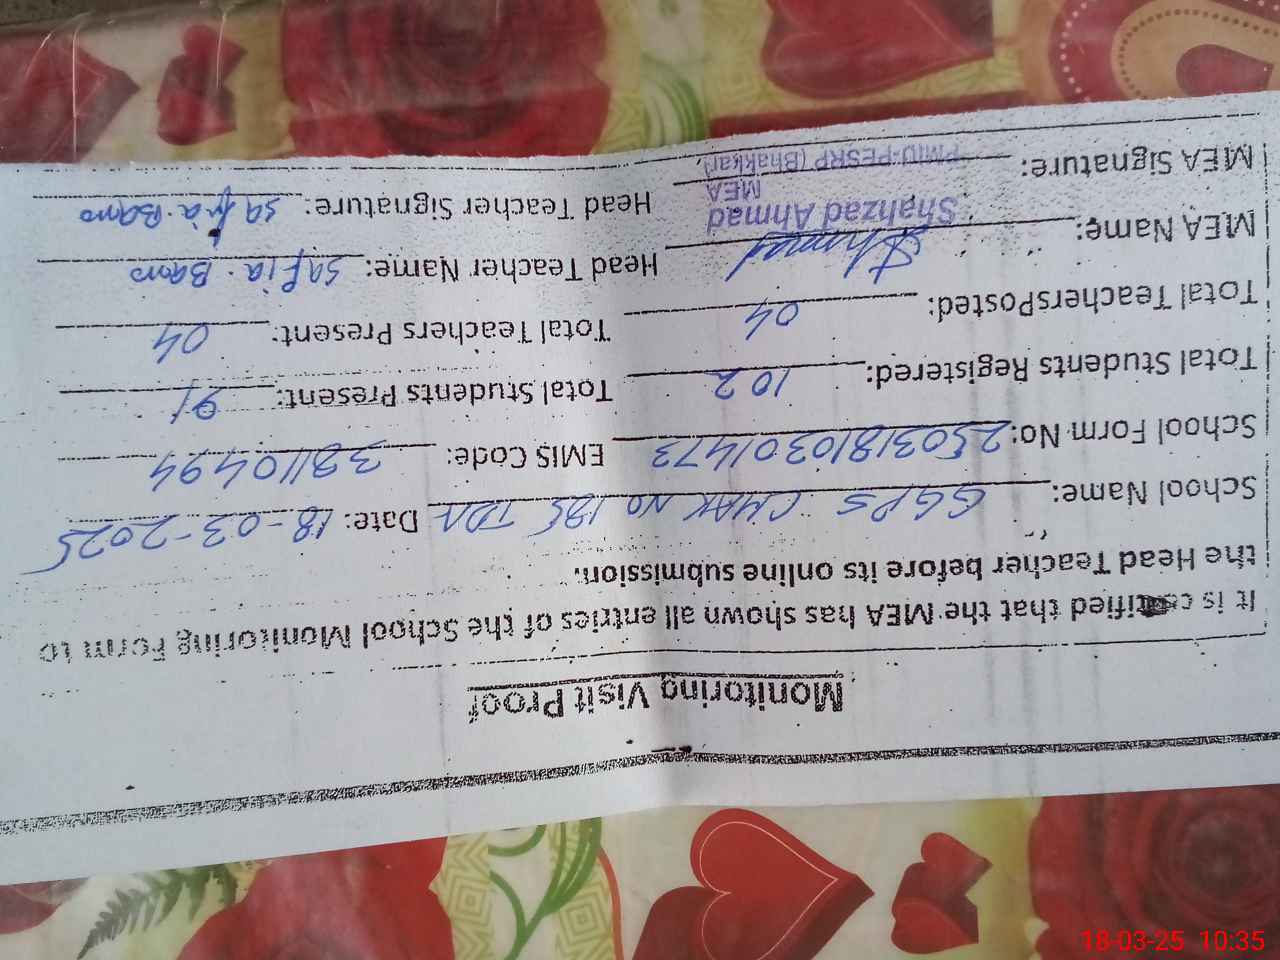 Monitoring Visit Proof
It is certified that the MEA has shown all entries of the School Monitoring Form to
the Head Teacher before its online submission.
School Name: GGPS CHAK NO 125 TDA Date: 18-03-2025
School Form No: 2503181030 1473 EMIS Code: 38110494
Total Students Registered: 102 Total Students Present: 91
Total TeachersPosted: 04 Total Teachers Present: 04
MEA Name: Head Teacher Name: Safia Bano
Shahzad Ahmad
MEA
PMIU-PESRP (Bhakkar)
MEA Signature: Head Teacher Signature: Safia Bano
18-03-25 10:35